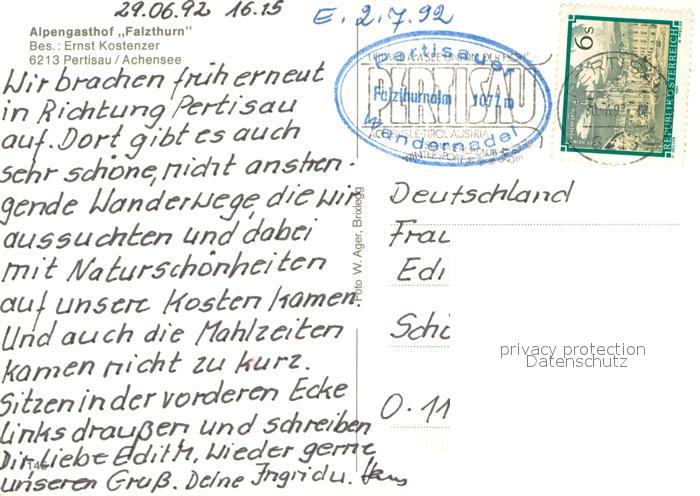 29.06.92 16.15
E. 2.7.92
Alpengasthof „Falzthurn"
Bes.: Ernst Kostenzer
6213 Pertisau / Achensee
Wir brachen früh erneut
in Richtung Pertisau
auf. Dort gibt es auch
sehr schöne, nicht anstren-
gende Wanderwege, die wir
aussuchten und dabei
mit Naturschönheiten
auf unsere Kosten kamen.
Und auch die Mahlzeiten
kamen nicht zu kurz.
Sitzen in der vorderen Ecke
links draußen und schreiben
Dir, liebe Edith, wieder gerne
unseren Gruß. Deine Ingrid u. Hans
Foto W. Ager, Brixlegg
Pertisauer
PERTISAU
Falzthurnalm 1077 m
Wandernadel
6 S
REPUBLIK ÖSTERREICH
Deutschland
Frau
Edi
Schü
O. 11
privacy protection
Datenschutz